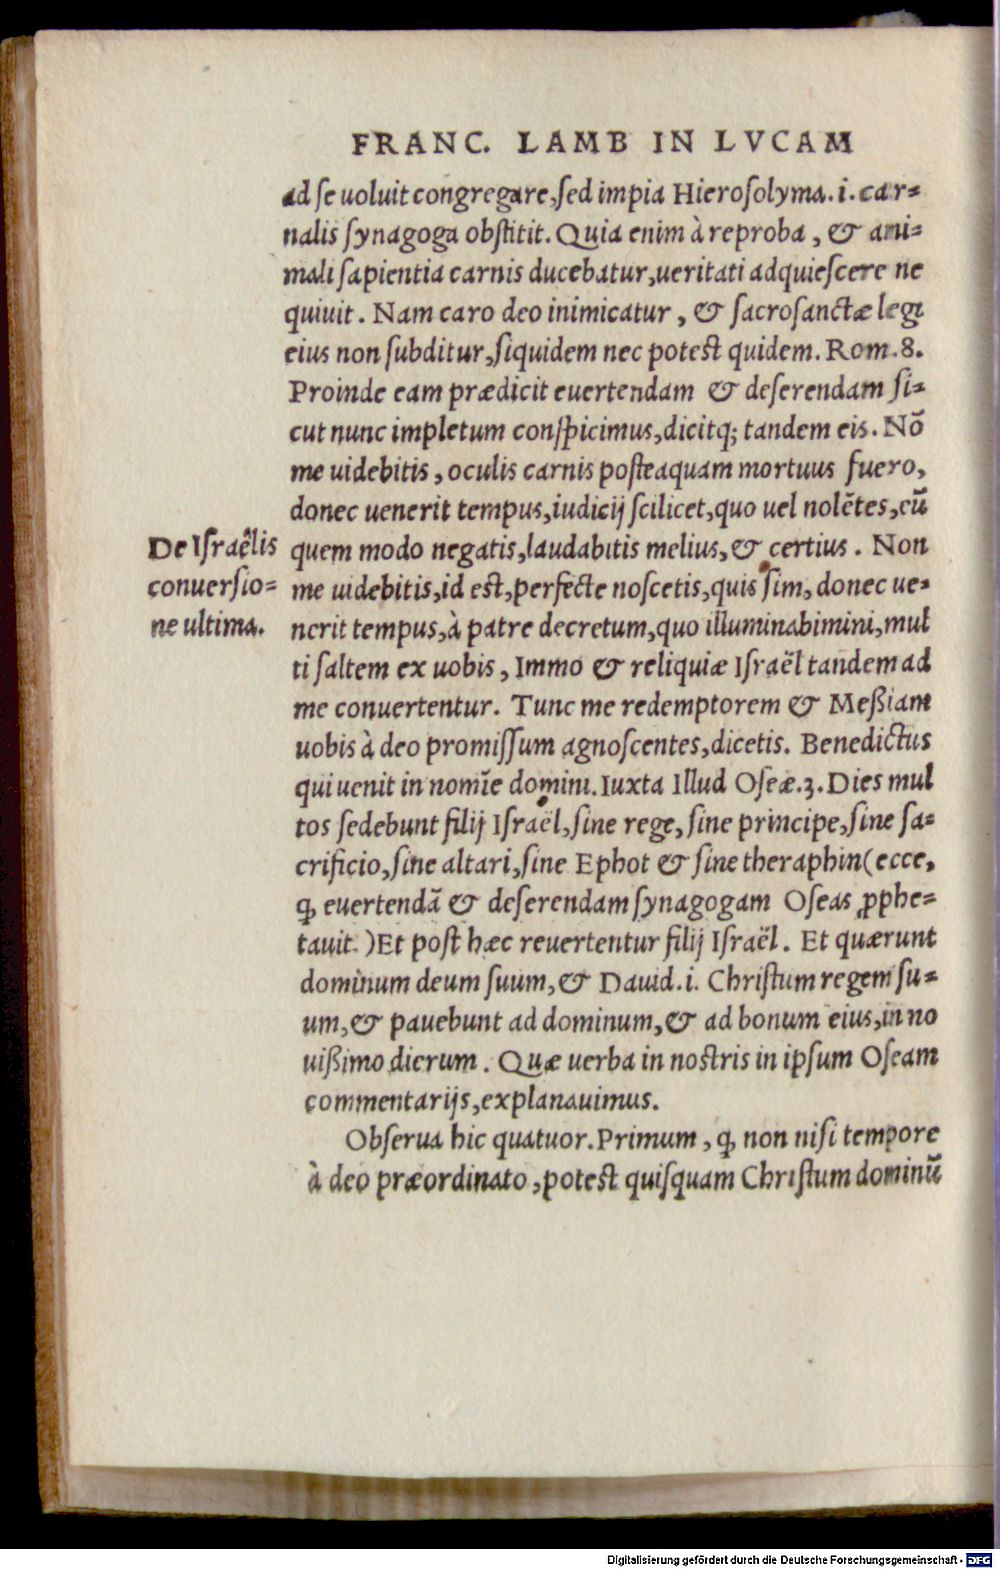 FRANC. LAMB IN LVCAM
ad se uoluit congregare, sed impia Hierosolyma.i.car⸗
nalis synagoga obstitit. Quia enim à reproba, & ani⸗
mali sapientia carnis ducebatur, ueritati adquiescere ne
quiuit. Nam caro deo inimicatur, & sacrosanctæ legi
eius non subditur, siquidem nec potest quidem. Rom.8.
Proinde eam prædicit euertendam & deserendam si⸗
cut nunc impletum conspicimus, dicitq; tandem eis. Nō
me uidebitis, oculis carnis posteaquam mortuus fuero,
donec uenerit tempus, iudicij scilicet, quo uel nolētes, eū
De Israëlis
conuersio⸗
ne ultima.
quem modo negatis, laudabitis melius, & certius. Non
me uidebitis, id est, perfecte noscetis, quis sim, donec ue⸗
nerit tempus, à patre decretum, quo illuminabimini, mul
ti saltem ex uobis, Immo & reliquiæ Israël tandem ad
me conuertentur. Tunc me redemptorem & Meßiam
uobis à deo promissum agnoscentes, dicetis. Benedictus
qui uenit in nomīe domini. Iuxta Illud Oseæ.3. Dies mul
tos sedebunt filij Israël, sine rege, sine principe, sine sa⸗
crificio, sine altari, sine Ephot & sine theraphin (ecce,
ꝙ euertendā & deserendam synagogam Oseas ꝓphe⸗
tauit.) Et post hæc reuertentur filij Israël. Et quærunt
dominum deum suum, & Dauid.i. Christum regem su⸗
um, & pauebunt ad dominum, & ad bonum eius, in no
uißimo dierum. Quæ uerba in nostris in ipsum Oseam
commentarijs, explanauimus.
Obserua hic quatuor. Primum, ꝙ non nisi tempore
à deo præordinato, potest quisquam Christum dominū
Digitalisierung gefördert durch die Deutsche Forschungsgemeinschaft - DFG